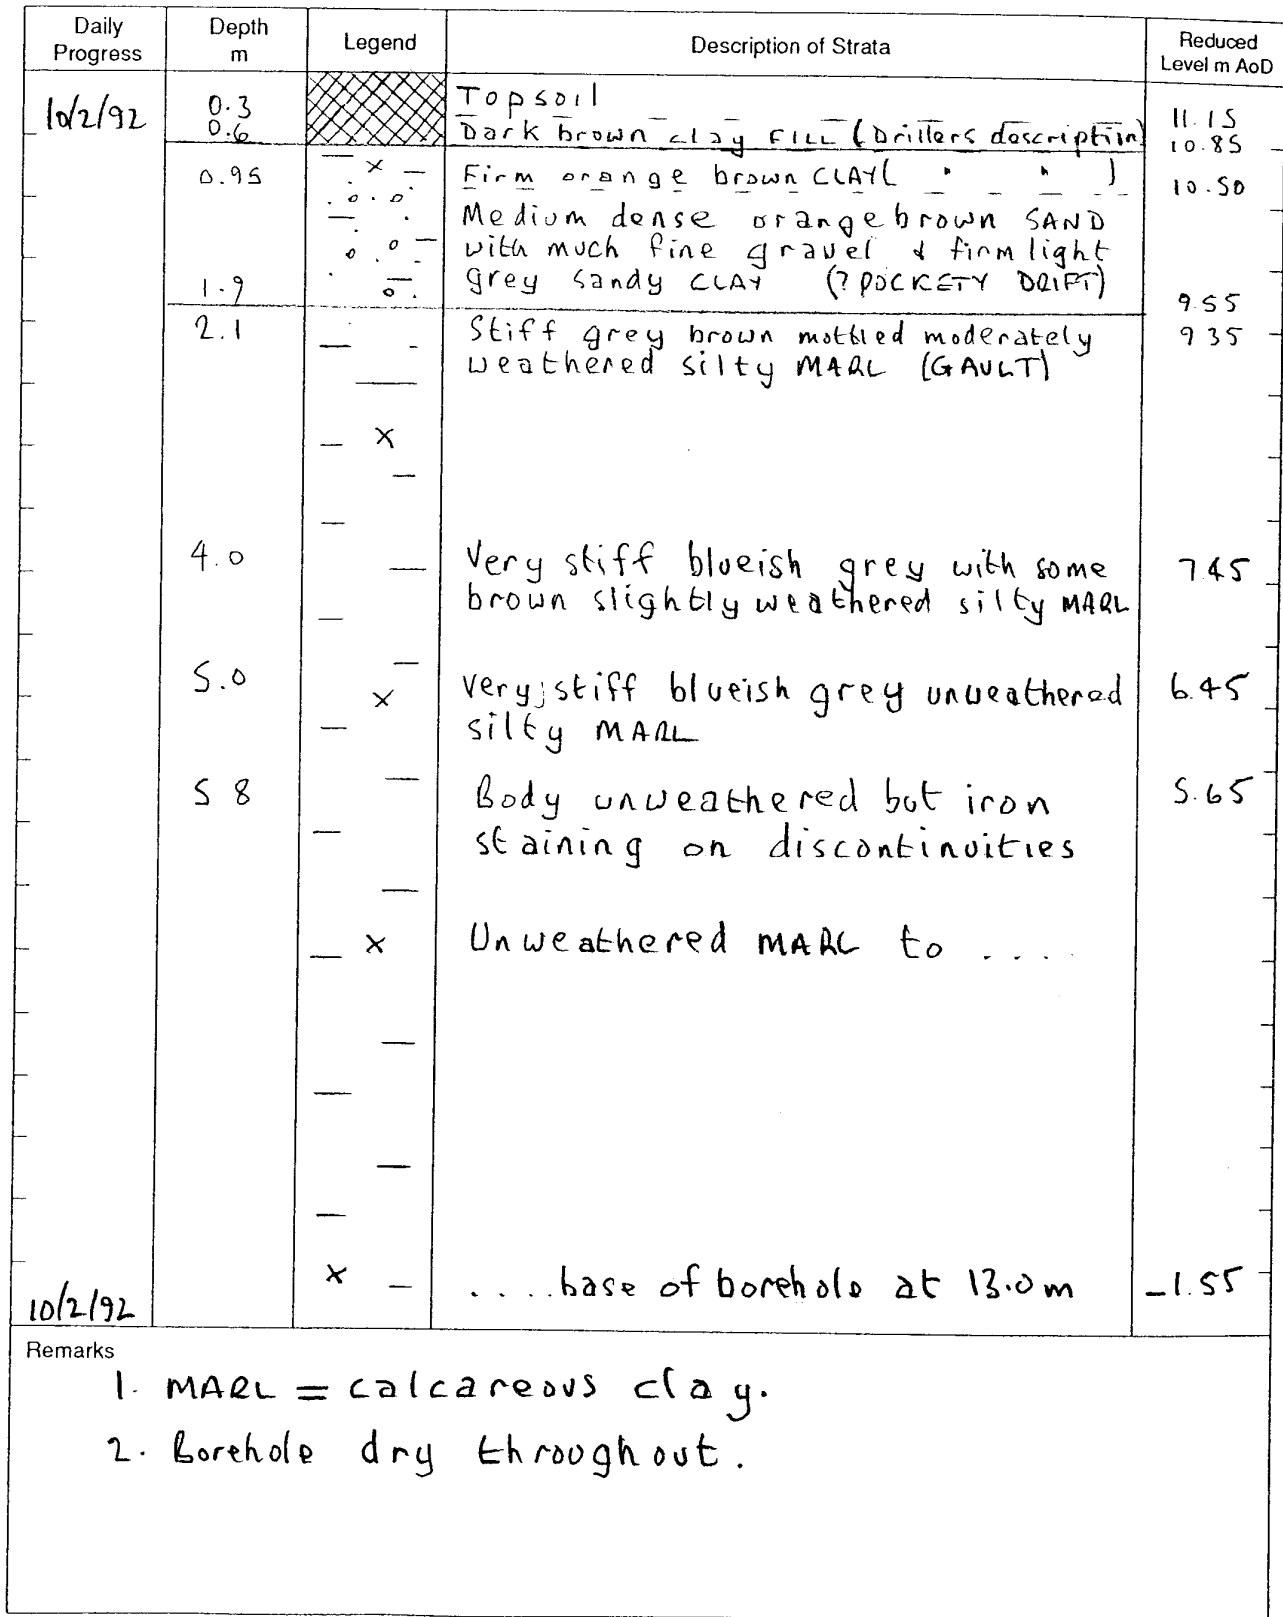 Daily Progress Depth m Legend Description of Strata Reduced Level m AoD
10/2/92 0.3 Topsoil 11.15
0.6 Dark brown clay FILL (Drillers description) 10.85
0.95 Firm orange brown CLAY( " " ) 10.50
Medium dense orange brown SAND
with much fine gravel & firm light
1.9 grey sandy CLAY (? POCKETY DRIFT) 9.55
2.1 Stiff grey brown mottled moderately 9 35
weathered silty MARL (GAULT)
4.0 Very stiff blueish grey with some 7.45
brown slightly weathered silty MARL
5.0 Very stiff blueish grey unweathered 6.45
silty MARL
5 8 Body unweathered but iron 5.65
staining on discontinuities
Unweathered MARL to ....
10/2/92 ....base of borehole at 13.0m -1.55
Remarks
1. MARL = calcareous clay.
2. Borehole dry throughout.